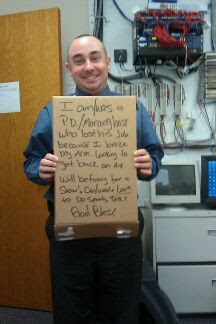 I am/was a
P.D/Morning host
who lost his Job
because I broke
my Arm. Looking to
get back on Air
Will be funny for a
show. Can/would Love
to Do Sports Talk!
God Bless!